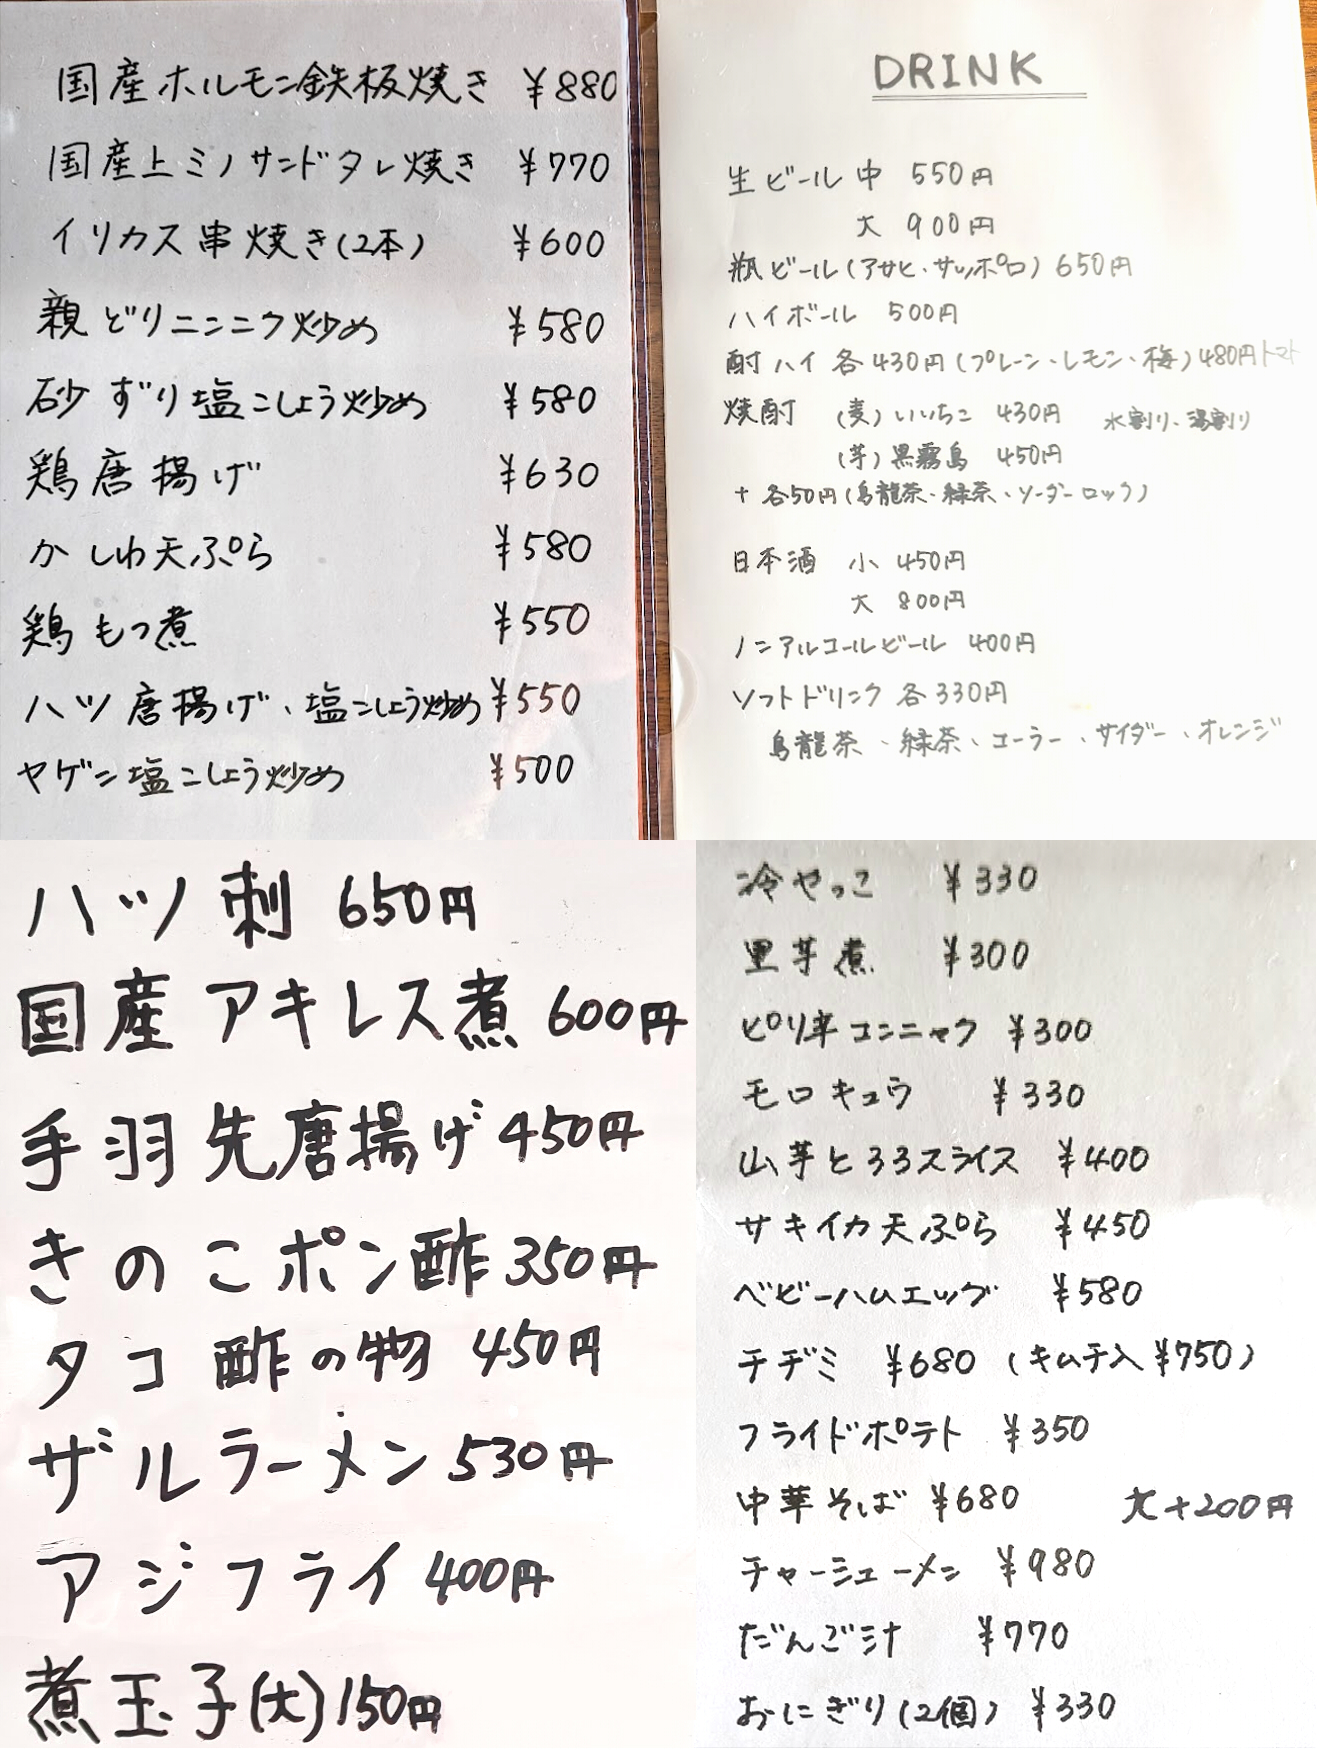 国産ホルモン鉄板焼き ¥880
国産上ミノサンドタレ焼き ¥770
イリカス串焼き(2本) ¥600
親どりニンニク炒め ¥580
砂ずり塩こしょう炒め ¥580
鶏唐揚げ ¥630
かしわ天ぷら ¥580
鶏もつ煮 ¥550
ハツ唐揚げ、塩こしょう炒め ¥550
ヤゲン塩こしょう炒め ¥500
DRINK
生ビール 中 550円
大 900円
瓶ビール(アサヒ・サッポロ) 650円
ハイボール 500円
酎ハイ 各430円(プレーン・レモン・梅) 480円トマト
焼酎 (麦)いいちこ 430円 水割り、湯割り
(芋)黒霧島 450円
+ 各50円(烏龍茶・緑茶・ソーダーロック)
日本酒 小 450円
大 800円
ノンアルコールビール 400円
ソフトドリンク 各330円
烏龍茶、緑茶、コーラー、サイダー、オレンジ
ハツ刺 650円
国産アキレス煮 600円
手羽先唐揚げ 450円
きのこポン酢 350円
タコ酢の物 450円
ザルラーメン 530円
アジフライ 400円
煮玉子(大) 150円
冷やっこ ¥330
里芋煮 ¥300
ピリ辛コンニャク ¥300
モロキュウ ¥330
山芋とろろスライス ¥400
サキイカ天ぷら ¥450
ベビーハムエッグ ¥580
チヂミ ¥680 (キムチ入¥750)
フライドポテト ¥350
中華そば ¥680 大+200円
チャーシューメン ¥980
だんご汁 ¥770
おにぎり(2個) ¥330